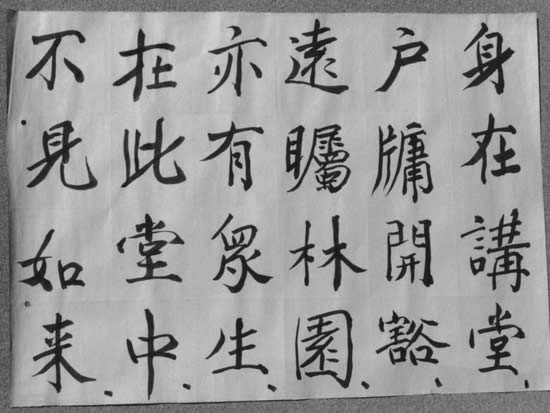 身在講堂、
户牗開豁、
遠矚林園、
亦有眾生、
在此堂中、
不見如来、